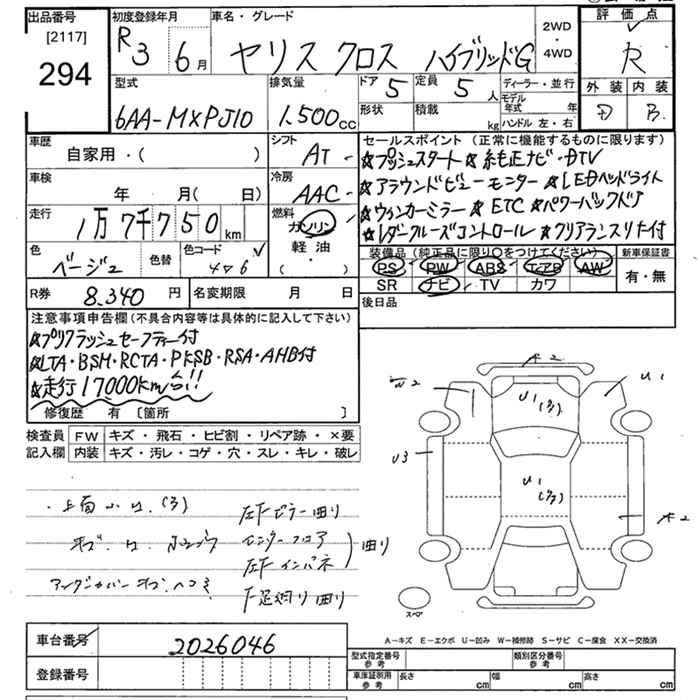 出品番号
[2117]
294
初度登録年月
R3 6月
車名・グレード
ヤリス クロス ハイブリッドG
2WD
・
4WD
評価点
R
外装 内装
D B
型式
6AA-MXPJ10
排気量
1.500cc
ドア 5
定員 5人
形状
積載 kg
ディーラー・並行
モデル年式 年
ハンドル 左・右
車歴
自家用・( )
シフト
AT
セールスポイント (正常に機能するものに限ります)
☆プッシュスタート☆純正ナビ・DTV
☆アラウンドビューモニター☆LEDヘッドライト
☆ウィンカーミラー☆ETC☆パワーバックドア
☆レダークルーズコントロール☆クリアランスソナー付
車検
年 月( 日)
冷房
AAC
走行
1万7千750km
燃料
ガソリン
軽油
( )
色
ベージュ
色替
色コード
4V6
装備品 (純正品に限り○をつけてください)
PS PW ABS エアB AW
SR ナビ TV カワ
新車保証書
有・無
R券
8.340円
名変期限 月 日
後日品
注意事項申告欄 (不具合内容等は具体的に記入して下さい)
☆プリクラッシュセーフティー付
☆LTA・BSM・RCTA・PKSB・RSA・AHB付
☆走行17000km台!!
修復歴 有 [箇所 ]
検査員 FW キズ・飛石・ヒビ割・リペア跡・×要
記入欄 内装 キズ・汚レ・コゲ・穴・スレ・キレ・破レ
左Fピラー曲り
センターフロア
左Fインパネ
曲り
F足廻り曲り
アンダーカバーキズ、ヘコミ
A2
W2
U1
U1
U3
U1
A2
スペア
A-キズ E-エクボ U-凹み W-補修跡 S-サビ C-腐食 XX-交換済
車台番号
2026046
登録番号
型式指定番号
参考
類別区分番号
参考
車庫証明用
参考
長さ cm
幅 cm
高さ cm